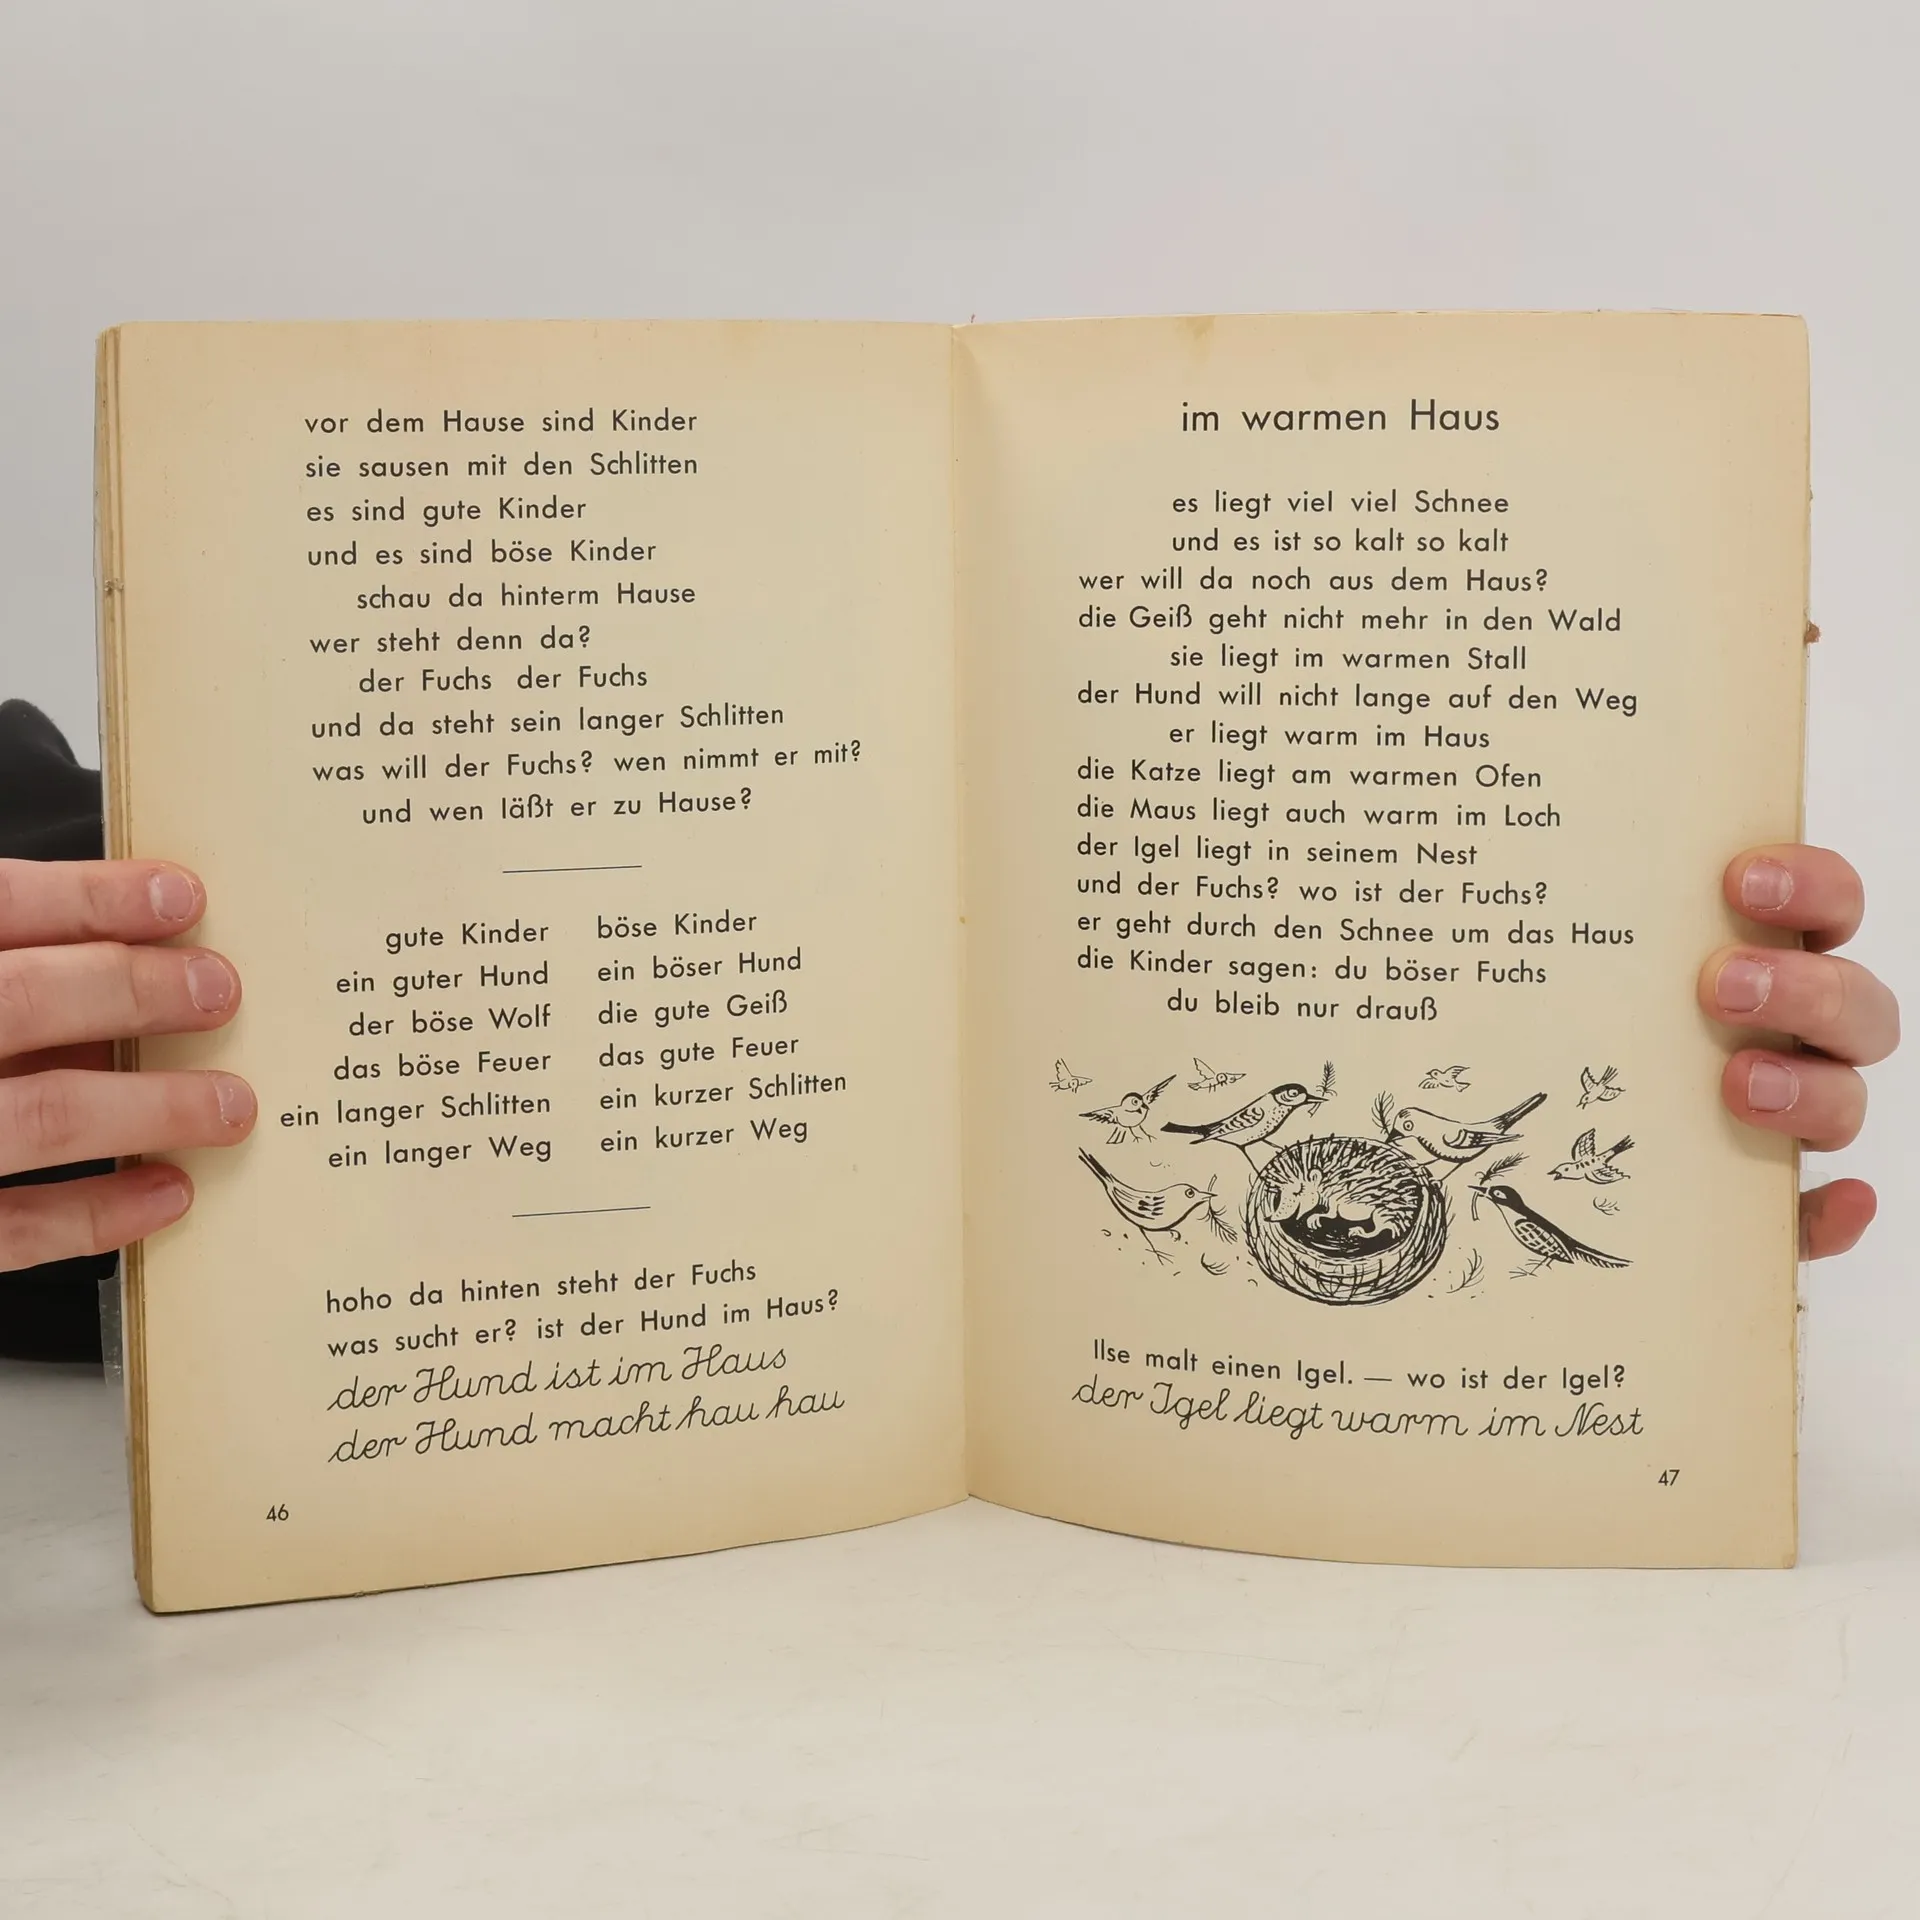 vor dem Hause sind Kinder
sie sausen mit den Schlitten
es sind gute Kinder
und es sind böse Kinder
schau da hinterm Hause
wer steht denn da?
der Fuchs der Fuchs
und da steht sein langer Schlitten
was will der Fuchs? wen nimmt er mit?
und wen läßt er zu Hause?
gute Kinder böse Kinder
ein guter Hund ein böser Hund
der böse Wolf die gute Geiß
das böse Feuer das gute Feuer
ein langer Schlitten ein kurzer Schlitten
ein langer Weg ein kurzer Weg
hoho da hinten steht der Fuchs
was sucht er? ist der Hund im Haus?
der Hund ist im Haus
der Hund macht hau hau
46
im warmen Haus
es liegt viel viel Schnee
und es ist so kalt so kalt
wer will da noch aus dem Haus?
die Geiß geht nicht mehr in den Wald
sie liegt im warmen Stall
der Hund will nicht lange auf den Weg
er liegt warm im Haus
die Katze liegt am warmen Ofen
die Maus liegt auch warm im Loch
der Igel liegt in seinem Nest
und der Fuchs? wo ist der Fuchs?
er geht durch den Schnee um das Haus
die Kinder sagen: du böser Fuchs
du bleib nur drauß
Ilse malt einen Igel. — wo ist der Igel?
der Igel liegt warm im Nest
47